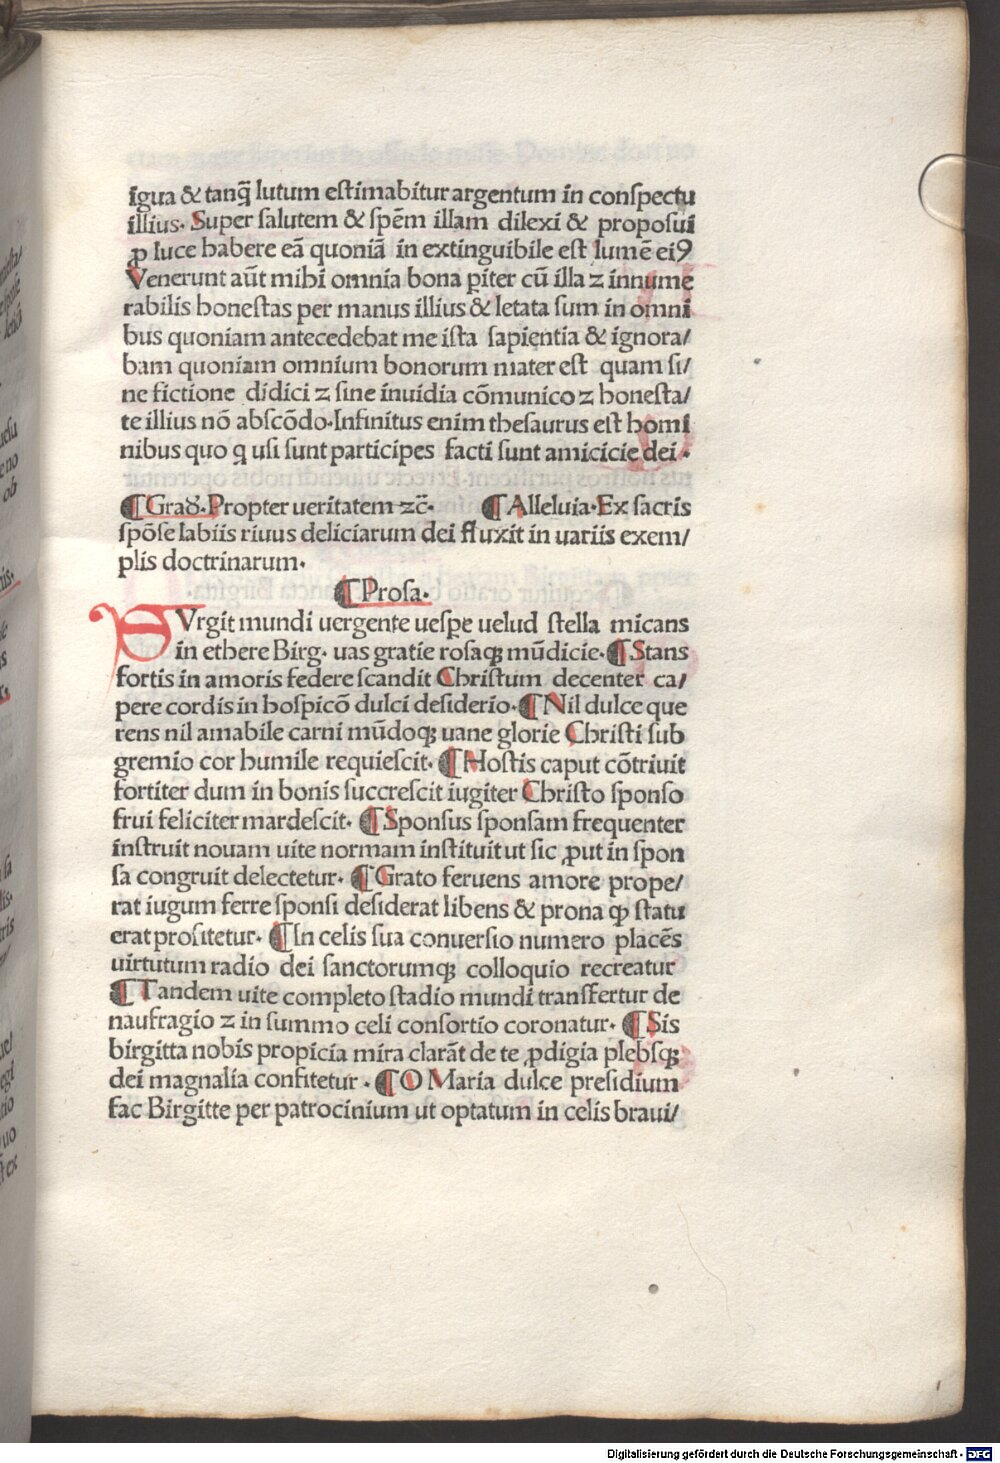 igua & tanq̃ lutum estimabitur argentum in conspectu
illius. Super salutem & spēm illam dilexi & proposui
ꝓ luce habere eā quoniā in extinguibile est lumē eiꝰ
Venerunt aūt mihi omnia bona piter cū illa ⁊ innume
rabilis honestas per manus illius & letata sum in omni
bus quoniam antecedebat me ista sapientia & ignora/
bam quoniam omnium bonorum mater est quam si/
ne fictione didici ⁊ sine inuidia cōmunico ⁊ honesta/
te illius nō abscōdo. Infinitus enim thesaurus est homi
nibus quo q usi sunt participes facti sunt amicicie dei.
¶ Grad̃. Propter ueritatem ⁊c̃. ¶ Alleluia. Ex sacris
spōse labiis riuus deliciarum dei fluxit in uariis exem/
plis doctrinarum.
¶ Prosa.
SVrgit mundi uergente uespe uelud stella micans
in ethere Birg. uas gratie rosaqꝫ mūdicie. ¶ Stans
fortis in amoris federe scandit Christum decenter ca/
pere cordis in hospicō dulci desiderio. ¶ Nil dulce que
rens nil amabile carni mūdoqꝫ uane glorie Christi sub
gremio cor humile requiescit. ¶ Hostis caput cōtriuit
fortiter dum in bonis succrescit iugiter Christo sponso
frui feliciter mardescit. ¶ Sponsus sponsam frequenter
instruit nouam uite normam instituit ut sic ꝓut in spon
sa congruit delectetur. ¶ Grato feruens amore prope/
rat iugum ferre sponsi desiderat libens & prona ꝙ statu
erat profitetur. ¶ In celis sua conuersio numero placēs
uirtutum radio dei sanctorumqꝫ colloquio recreatur
¶ Tandem uite completo stadio mundi transfertur de
naufragio ⁊ in summo celi consortio coronatur. ¶ Sis
birgitta nobis propicia mira clarāt de te ꝓdigia plebsqꝫ
dei magnalia confitetur. ¶ O Maria dulce presidium
fac Birgitte per patrocinium ut optatum in celis braui/
Digitalisierung gefördert durch die Deutsche Forschungsgemeinschaft - DFG